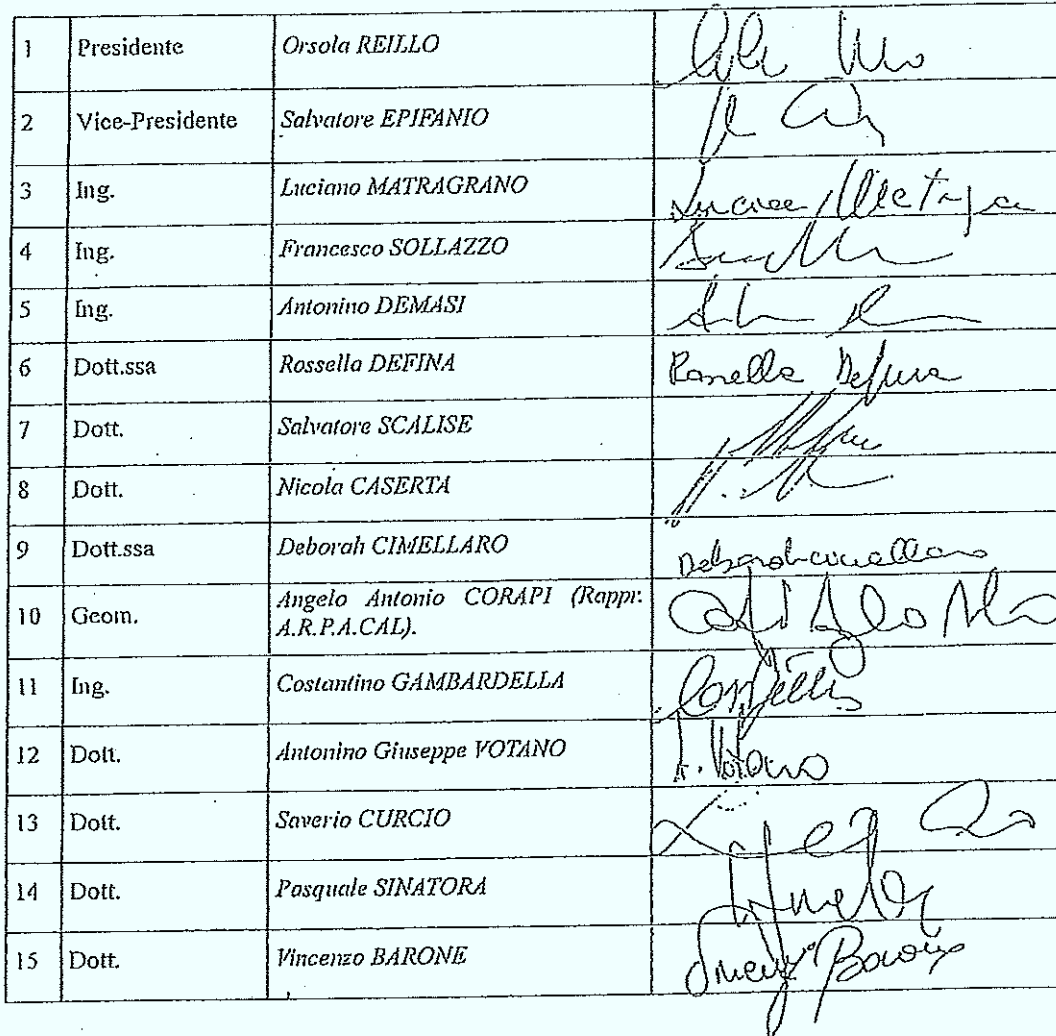 1 Presidente Orsola REILLO
2 Vice-Presidente Salvatore EPIFANIO
3 Ing. Luciano MATRAGRANO
4 Ing. Francesco SOLLAZZO
5 Ing. Antonino DEMASI
6 Dott.ssa Rossella DEFINA Rossella Defina
7 Dott. Salvatore SCALISE
8 Dott. Nicola CASERTA
9 Dott.ssa Deborah CIMELLARO Deborah Cimellaro
10 Geom. Angelo Antonio CORAPI (Rappr.
A.R.P.A.CAL).
11 Ing. Costantino GAMBARDELLA
12 Dott. Antonino Giuseppe VOTANO A. Votano
13 Dott. Saverio CURCIO
14 Dott. Pasquale SINATORA
15 Dott. Vincenzo BARONE Barone